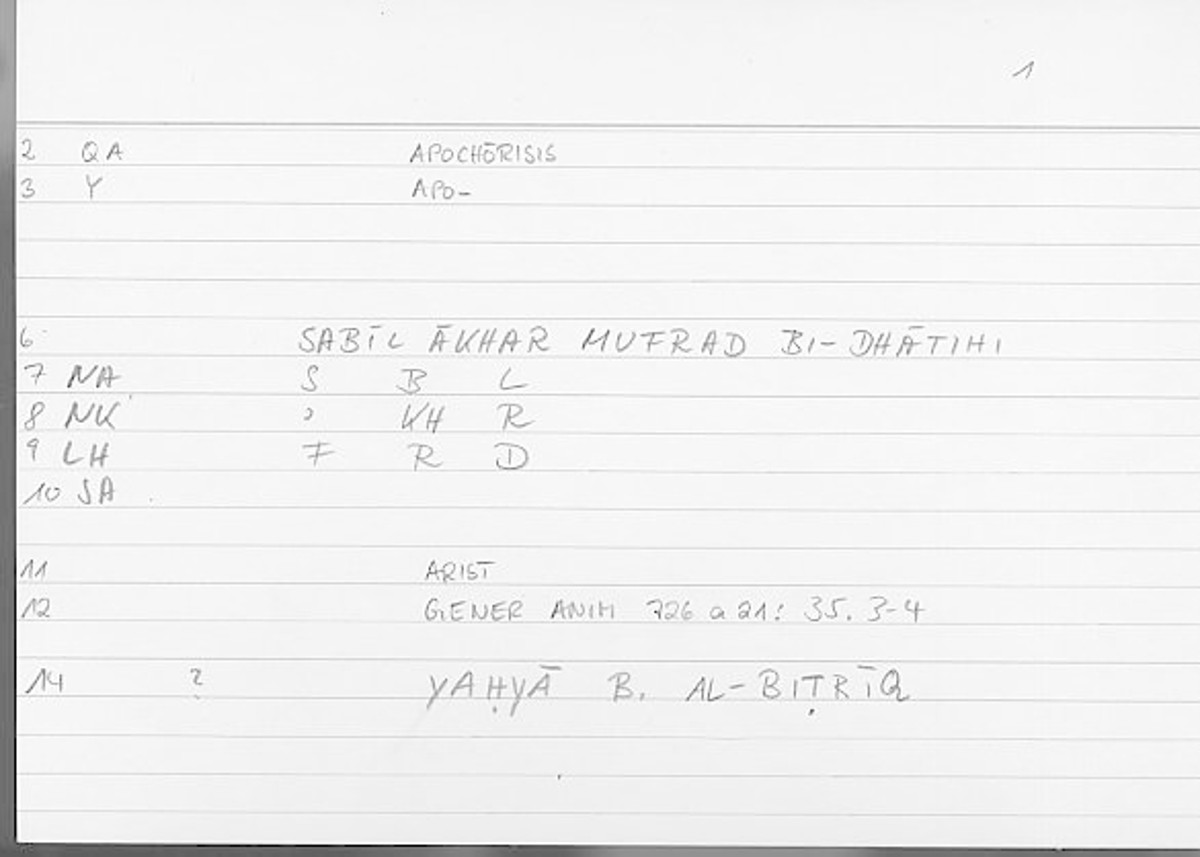 1
2 QA APOCHŌRISIS
3 Y APO-
6 SABĪL ĀKHAR MUFRAD BI-DHĀTIHI
7 NA S B L
8 NK ʾ KH R
9 LH F R D
10 SA
11 ARIST
12 GENER ANIM 726 a 21: 35. 3-4
14 ? YAḤYĀ B. AL-BIṬRĪQ